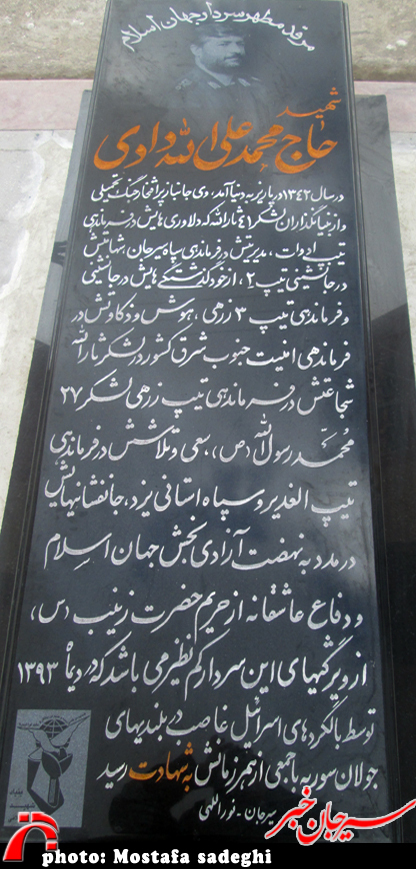 مرقد مطهر سردار جهان اسلام
شهید
حاج محمد علی الله دادی
در سال ۱۳۴۲ در پاریز به دنیا آمد، وی جانباز پر افتخار جنگ تحمیلی
و از بنیانگذاران لشکر ۴۱ ثارالله که دلاوری هایش در فرماندهی
تیپ ادوات، مدیریتش در فرماندهی سپاه سیرجان، شهامتش
در جانشینی تیپ ۲، از خود گذشتگی هایش در جانشینی
و فرماندهی تیپ ۳ زرهی، هوش و ذکاوتش در
فرماندهی امنیت جنوب شرق کشور در لشکر ثارالله
شجاعتش در فرماندهی تیپ زرهی لشکر ۲۷
محمد رسول الله (ص)، سعی و تلاشش در فرماندهی
تیپ الغدیر و سپاه استانی یزد، جانفشانیهایش
در مدد به نهضت آزادی بخش جهان اسلام
و دفاع عاشقانه از حریم حضرت زینب (س)،
از ویژگیهای این سردار کم نظیر می باشد که در دیماه ۱۳۹۳
توسط بالگردهای اسرائیل غاصب در بلندیهای
جولان سوریه با جمعی از همرزمانش به شهادت رسید
سیرجان - نوراللهی
سیرجان خبر
photo: Mostafa sadeghi